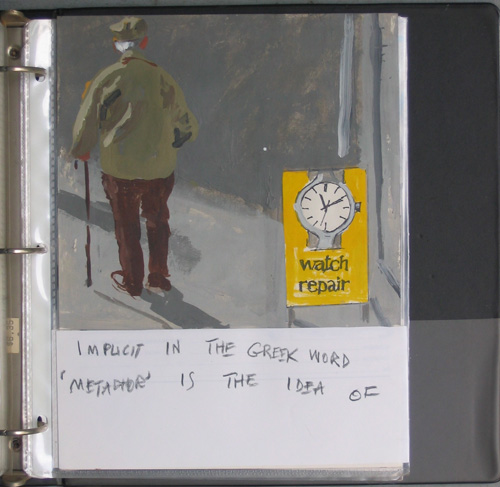 watch
repair
IMPLICIT IN THE GREEK WORD
'METAPHOR' IS THE IDEA OF